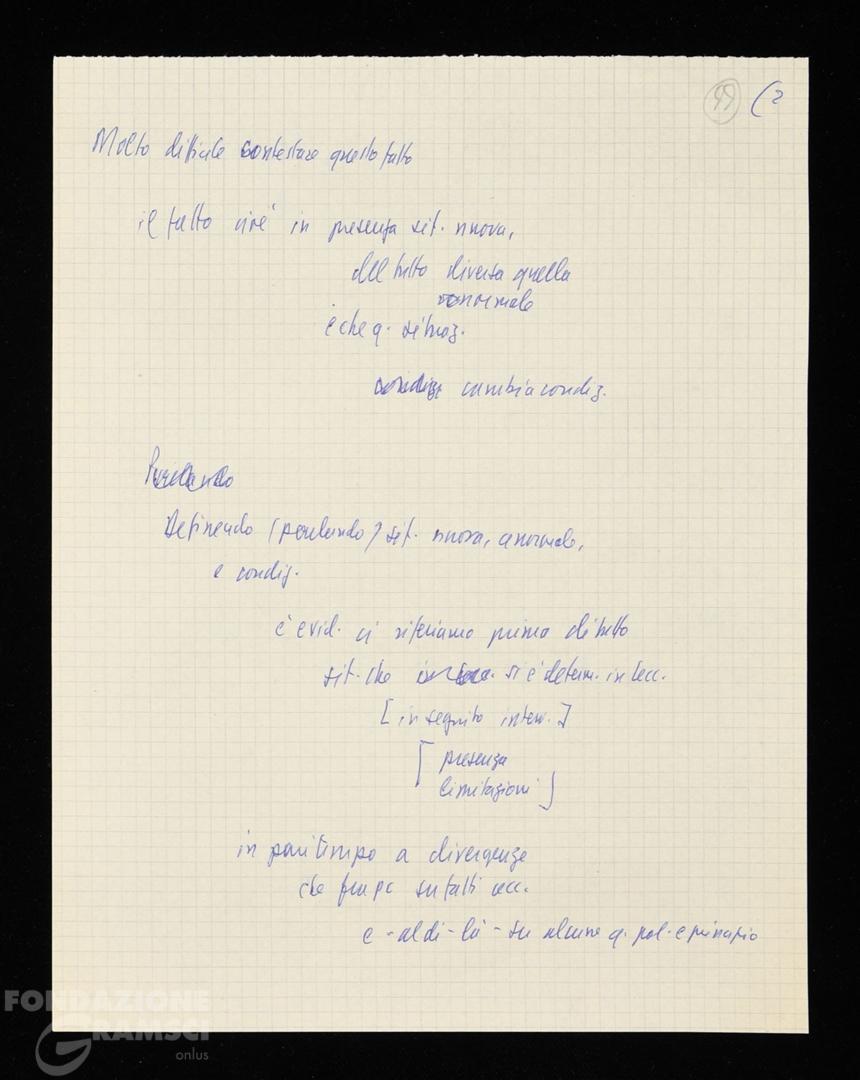 99 (2
Molto difficile contestare questo fatto
il fatto cioè in presenza sit. nuova,
del tutto diversa quella
normale
è che q. situaz.
condiz cambia condiz.
Parlando
Definendo (parlando) sit. nuova, anormale,
e condiz.
è evid. ci riferiamo prima di tutto
sit. che si è determ. in Cec.
[in seguito interv.]
[presenza
limitazioni]
in pari tempo a divergenze
che fra pc su fatti cec.
e - al di - là - su alcune q. pol. e principio
FONDAZIONE
GRAMSCI
onlus